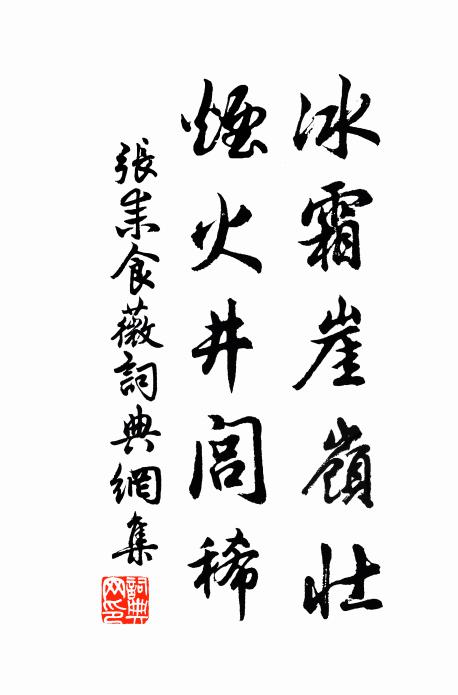 冰霜崖嶺壯
煙火井閭稀
張耒食薇詞典網集
詞典網印